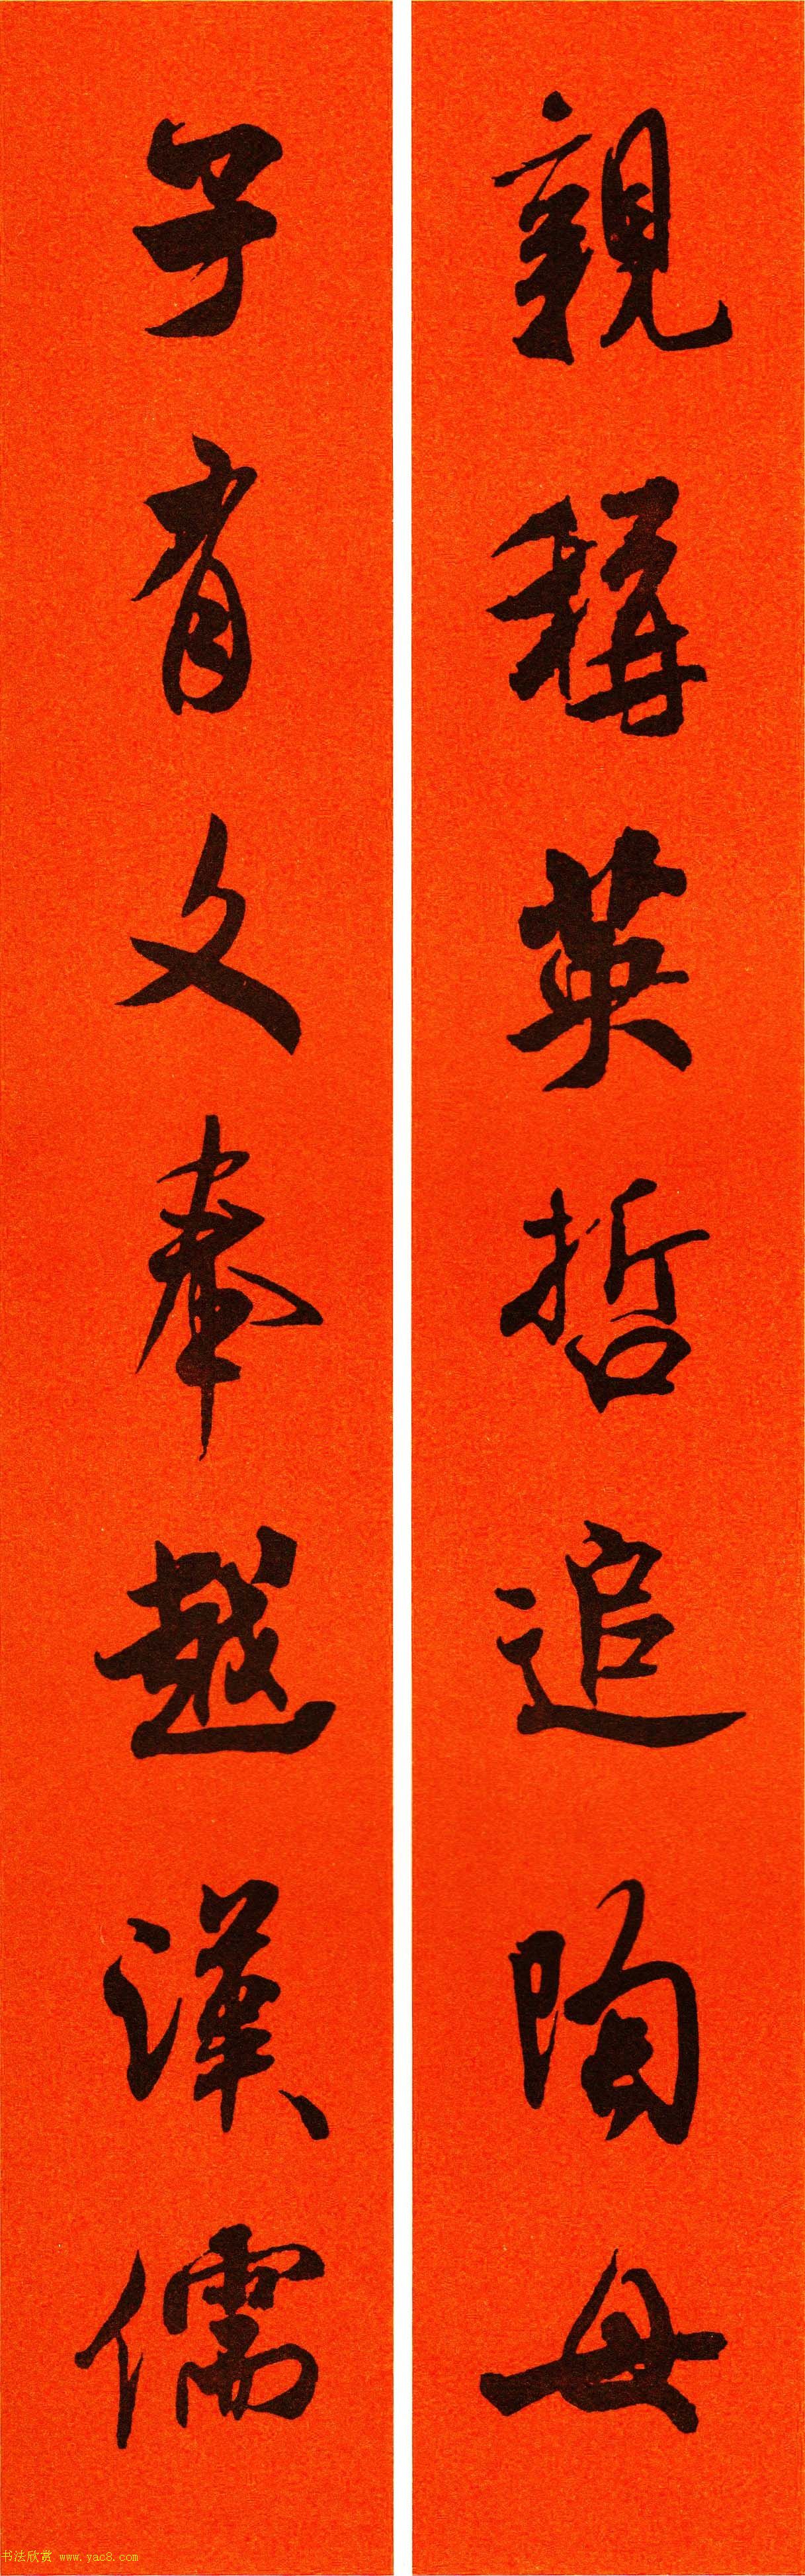 親稱英哲追陶母
子有文奉越漢儒
书法欣赏 www.yac8.com